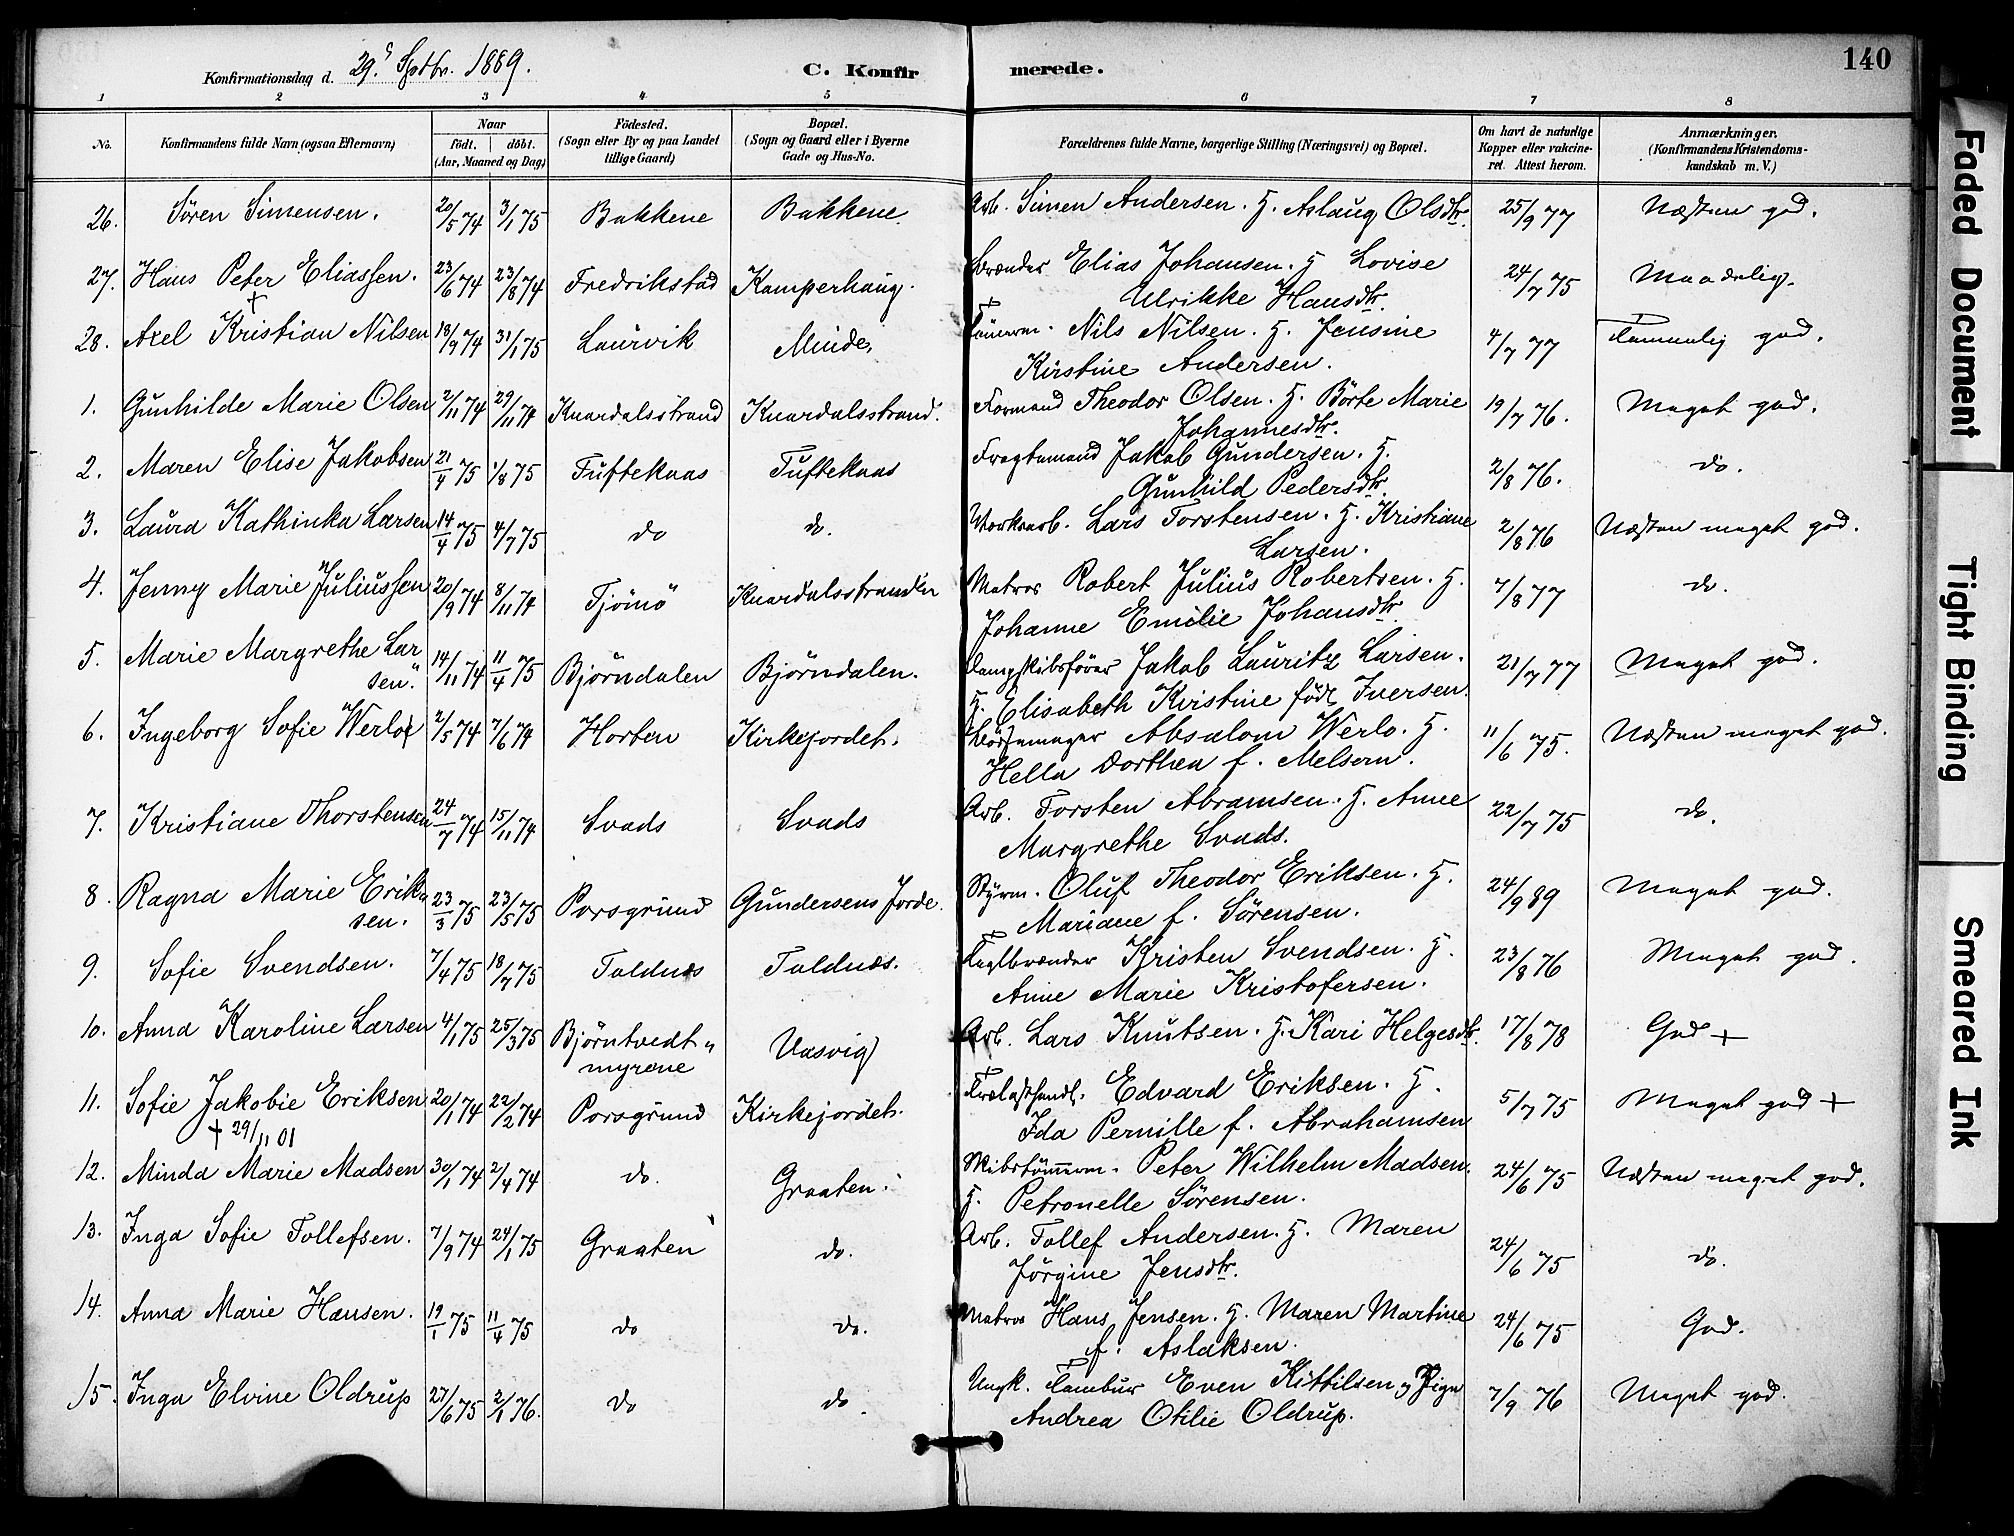 Konfirmationsdag d. 29. Septbr. 1889.
C. Konfirmerede.
140
1 2 3 4 5 6 7 8
No.
Konfirmandens fulde Navn (ogsaa Efternavn)
Naar
Födt. döbt.
(Aar, Maaned og Dag)
Födested.
(Sogn eller By og paa Landet
tillige Gaard)
Bopæl.
(Sogn og Gaard eller i Byerne
Gade og Hus-No.
Forældrenes fulde Navne, borgerlige Stilling (Næringsvei) og Bopæl.
Om havt de naturlige
Kopper eller vakcine-
ret. Attest herom.
Anmærkninger.
(Konfirmandens Kristendoms-
kundskab m. V.)
26. Sören Simensen. 20/5 74 3/1 75 Bakkene Bakkene Arb. Simen Andersen. H. Aslaug Olsdtr. 25/9 77 Næsten god.
27. Hans Peter Eliassen. 23/6 74 23/8 74 Fredrikstad Kamperhaug. Brænder Elias Johansen. H. Lovise 24/7 75 Maadelig.
+
Ulrikke Hansdtr.
28. Axel Kristian Nilsen 18/9 74 31/1 75 Laurvik Minde Tömmerm. Nils Nilsen. H. Jensine 4/7 77 Temmelig god.
Kirstine Andersen.
1. Gunhilde Marie Olsen 2/11 74 29/11 74 Knardalsstrand Knardalsstrand. Formand Theodor Olsen. H. Börte Marie 19/7 76. Meget god.
Johannesdtr.
2. Maren Elise Jakobsen 21/4 75 1/8 75 Tuftekaas Tuftekaas Fragtemand Jakob Gundersen. H. 2/8 76. do.
Gunhild Pedersdtr.
3. Laura Kathinka Larsen 14/4 75 4/7 75 do do. Værksarb. Lars Torstensen. H. Kristiane 2/8 76 Næsten meget god.
Larsen.
4. Jenny Marie Juliussen 20/9 74 8/11 74 Tjömö Knardalsstranden Matros Robert Julius Robertsen. H. 7/8 77 do.
Johanne Emilie Johansdtr.
5. Marie Margrethe Lar 14/11 74 11/4 75 Björndalen Björndalen. Dampskibsförer Jakob Lauritz Larsen. 21/7 77 Meget god.
sen.
H. Elisabeth Kirstine född Iversen.
6. Ingeborg Sofie Werlo 2/5 74 7/6 74 Horten Kirkejordet. Börsemager Absalom Werlo. H. 11/6 75. Næsten meget god.
Hella Dorthea f. Melsom.
7. Kristiane Thorstensen 24/7 74 15/11 74 Svads Svads Arb. Torsten Abramsen. H. Anne 22/7 75 do.
Margrethe Svads.
8. Ragna Marie Erik 23/3 75 23/5 75 Porsgrund Gundersens Jorde. Styrm. Oluf Theodor Eriksen. H. 24/9 89 Meget god.
sen.
Mariane f. Sörensen.
9. Sofie Svendsen. 7/4 75 18/7 75 Toldnæs Toldnæs. Teglbrænder Kristen Svendsen. H. 23/8 76 Meget god.
Anne Marie Kristofersen.
10. Anna Karoline Larsen 4/1 75 25/3 75 Björntvedt Vasvig Arb. Lars Knutsen. H. Kari Helgesdtr. 17/8 78 God +
myrene
11. Sofie Jakobie Eriksen 20/1 74 22/2 74 Porsgrund Kirkejordet. Trælasthandl. Edvard Eriksen. H. 5/7 75 Meget god +
+ 29/11 01
Ida Pernille f. Abrahamsen
12. Minda Marie Madsen 30/1 74 2/4 74 do. Graaten. Skibstömmerm. Peter Wilhelm Madsen. 24/6 75 Næsten meget god.
H. Petronelle Sörensen.
13. Inga Sofie Tollefsen. 7/9 74 24/1 75 Graaten do. Arb. Tollef Andersen. H. Maren 24/6 75 do.
Jörgine Jensdtr.
14. Anna Marie Hansen. 19/1 75 11/4 75 do do. Matros Hans Jensen. H. Maren Martine 24/6 75 God.
f. Aslaksen.
15. Inga Elvine Oldrup 27/6 75 2/1 76. do do. Ungk. Tambur Even Kittilsen og Pige 7/9 76 Meget god.
Andrea Otilie Oldrup.
Faded Document
Tight Binding
Smeared Ink